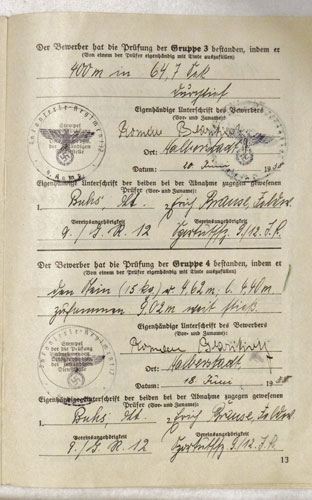 Der Bewerber hat die Prüfung der Gruppe 3 bestanden, indem er
(Von einem der Prüfer eigenhändig mit Tinte auszufüllen)
400 m in 64,7 Sek
durchlief
Eigenhändige Unterschrift des Bewerbers
(Vor- und Zuname):
Roman
Ort: Halberstadt
Datum: Juni 19
Stempel
Eigenhändige Unterschrift der beiden bei der Abnahme zugegen gewesenen
Prüfer (Vor- und Zuname):
1. Buhs, Lt. Erich Krause,
Vereinsangehörigkeit Vereinsangehörigkeit
9./J.R. 12 9/12. J.R.
Der Bewerber hat die Prüfung der Gruppe 4 bestanden, indem er
(Von einem der Prüfer eigenhändig mit Tinte auszufüllen)
den Stein (15 kg) r 4,62 m. l. 4,40 m
zusammen 9,02 m weit stieß
Eigenhändige Unterschrift des Bewerbers
(Vor- und Zuname):
Roman
Stempel
der die Prüfung
Ort: Halberstadt
Datum: 18. Juni 19
Eigenhändige Unterschrift der beiden bei der Abnahme zugegen gewesenen
Prüfer (Vor- und Zuname):
1. Buhs, Lt. Erich Krause,
Vereinsangehörigkeit Vereinsangehörigkeit
9./J.R. 12 9/12. J.R.
13